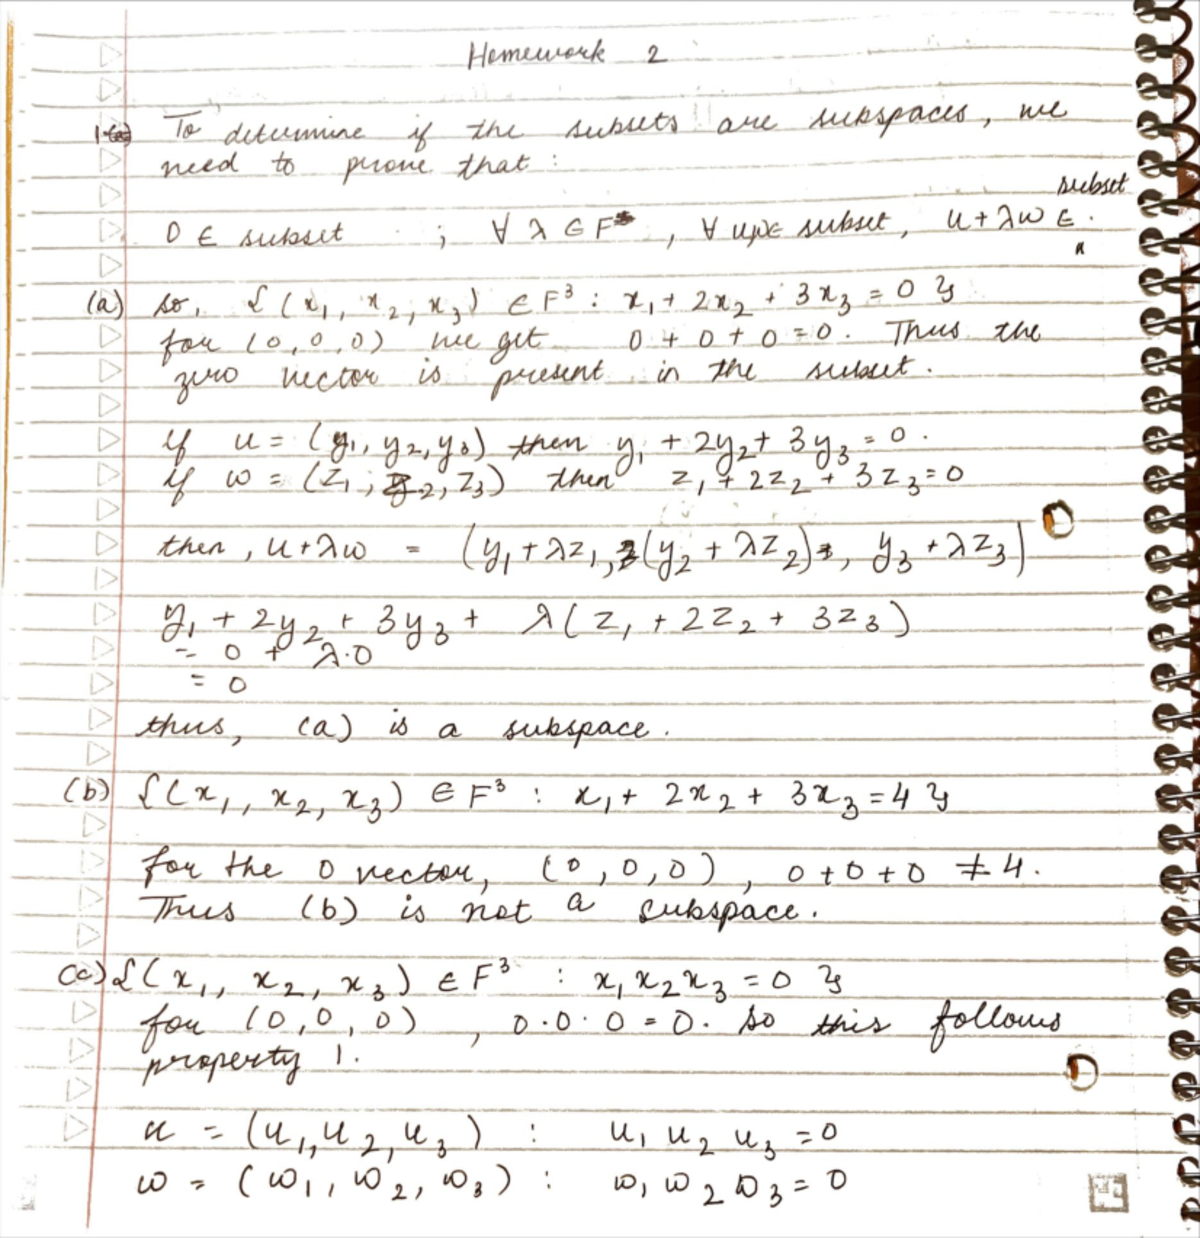 Homework 2
1. To determine if the subsets are subspaces, we
need to prove that :
subset
0 ∈ subset ; ∀ λ ∈ F , ∀ u,w ∈ subset, u + λw ∈ .
(a) so, {(x₁, x₂, x₃) ∈ F³ : x₁ + 2x₂ + 3x₃ = 0}
for (0,0,0) we get 0 + 0 + 0 = 0. Thus the
zero vector is present in the subset.
if u = (y₁, y₂, y₃) then y₁ + 2y₂ + 3y₃ = 0.
if w = (z₁, z₂, z₃) then z₁ + 2z₂ + 3z₃ = 0
then, u + λw = (y₁ + λz₁, (y₂ + λz₂), y₃ + λz₃)
y₁ + 2y₂ + 3y₃ + λ(z₁ + 2z₂ + 3z₃)
= 0 + λ·0
= 0
thus, (a) is a subspace.
(b) {(x₁, x₂, x₃) ∈ F³ : x₁ + 2x₂ + 3x₃ = 4}
for the 0 vector, (0,0,0), 0 + 0 + 0 ≠ 4.
Thus (b) is not a subspace.
(c) {(x₁, x₂, x₃) ∈ F³ : x₁x₂x₃ = 0}
for (0,0,0), 0·0·0 = 0. So this follows
property 1.
u = (u₁, u₂, u₃) : u₁ u₂ u₃ = 0
w = (w₁, w₂, w₃) : w₁ w₂ w₃ = 0